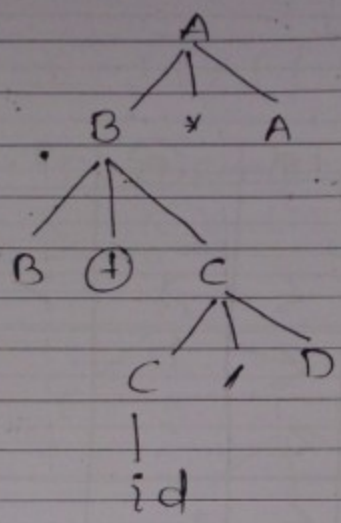 A
B * A
B + C
C / D
id